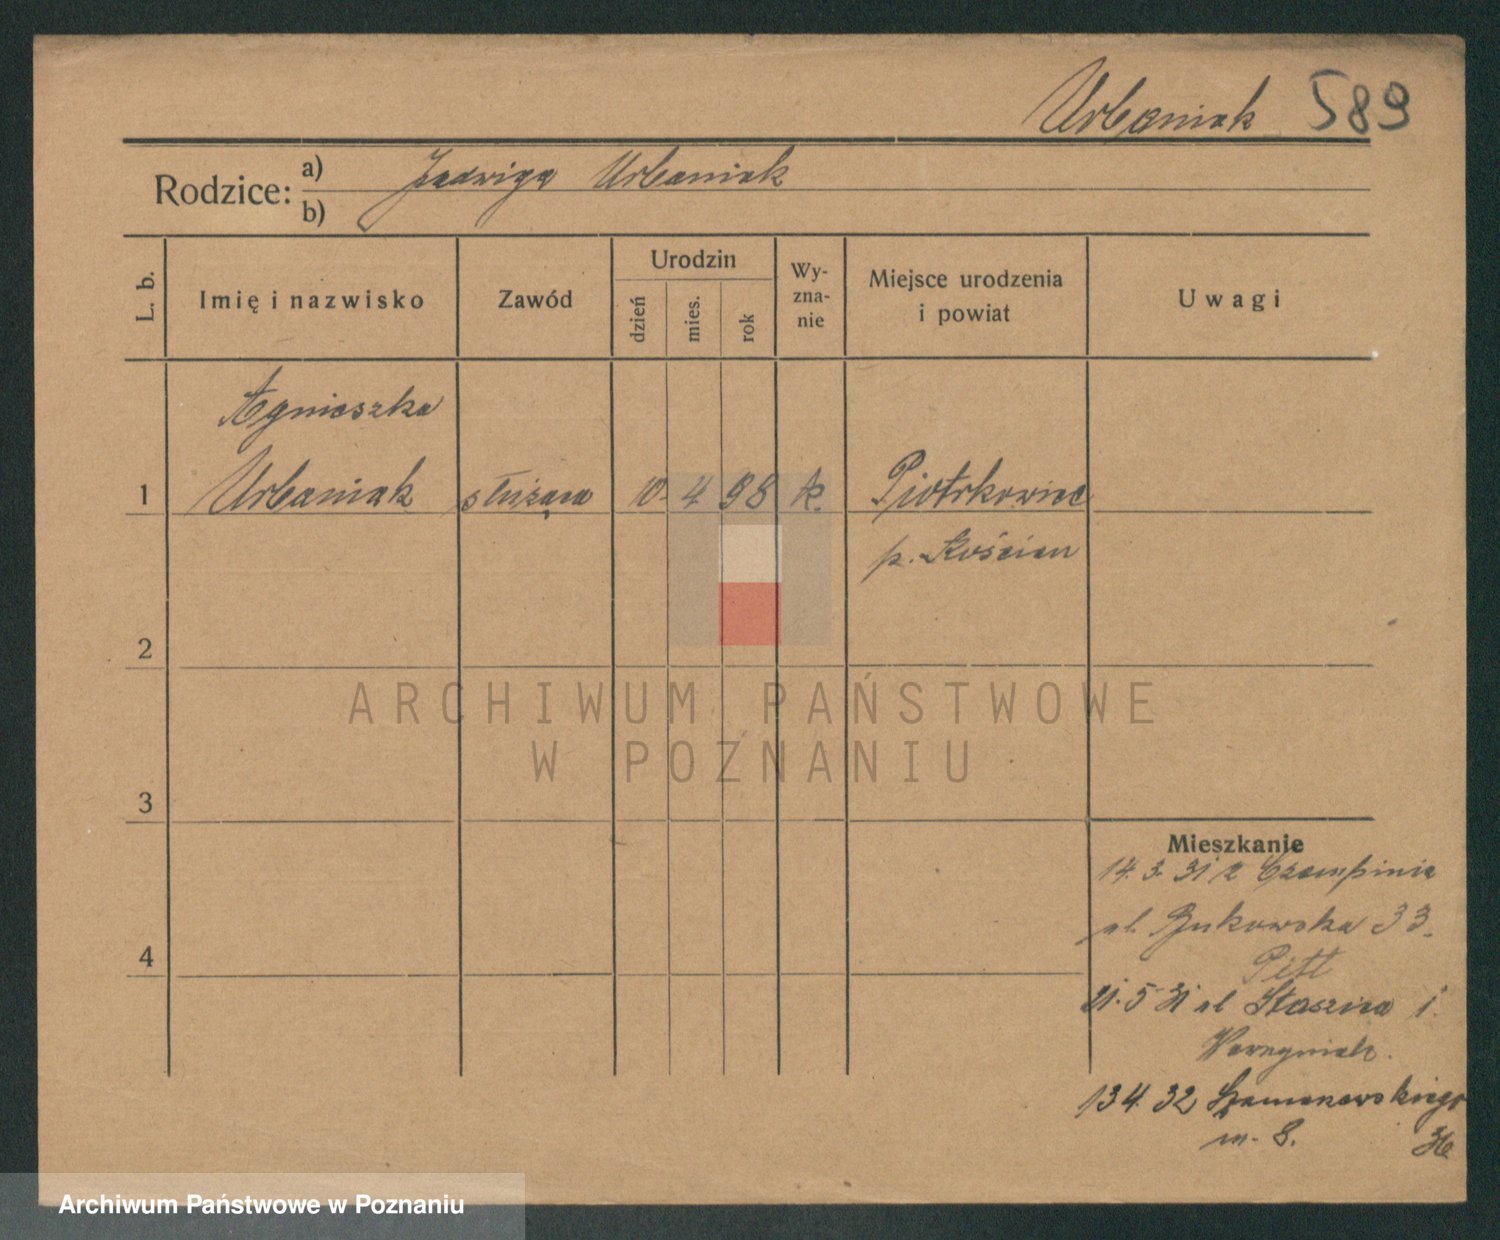 Urbaniak 589
Rodzice:
a) Jadwiga Urbaniak
b)
L. b.
Imię i nazwisko
Zawód
Urodzin
dzień
mies.
rok
Wy-
zna-
nie
Miejsce urodzenia
i powiat
Uwagi
Agnieszka
1 Urbaniak służąca 10 4 98 k. Piotrkowice
p. Kościan
2
3
4
Mieszkanie
14. 3. 31 z Czempinia
ul. Bukowska 33.
21. 5 31 ul Staszica 1.
13 4. 32 Szamarzewskiego
m. 8. 36
ARCHIWUM PAŃSTWOWE
W POZNANIU
Archiwum Państwowe w Poznaniu